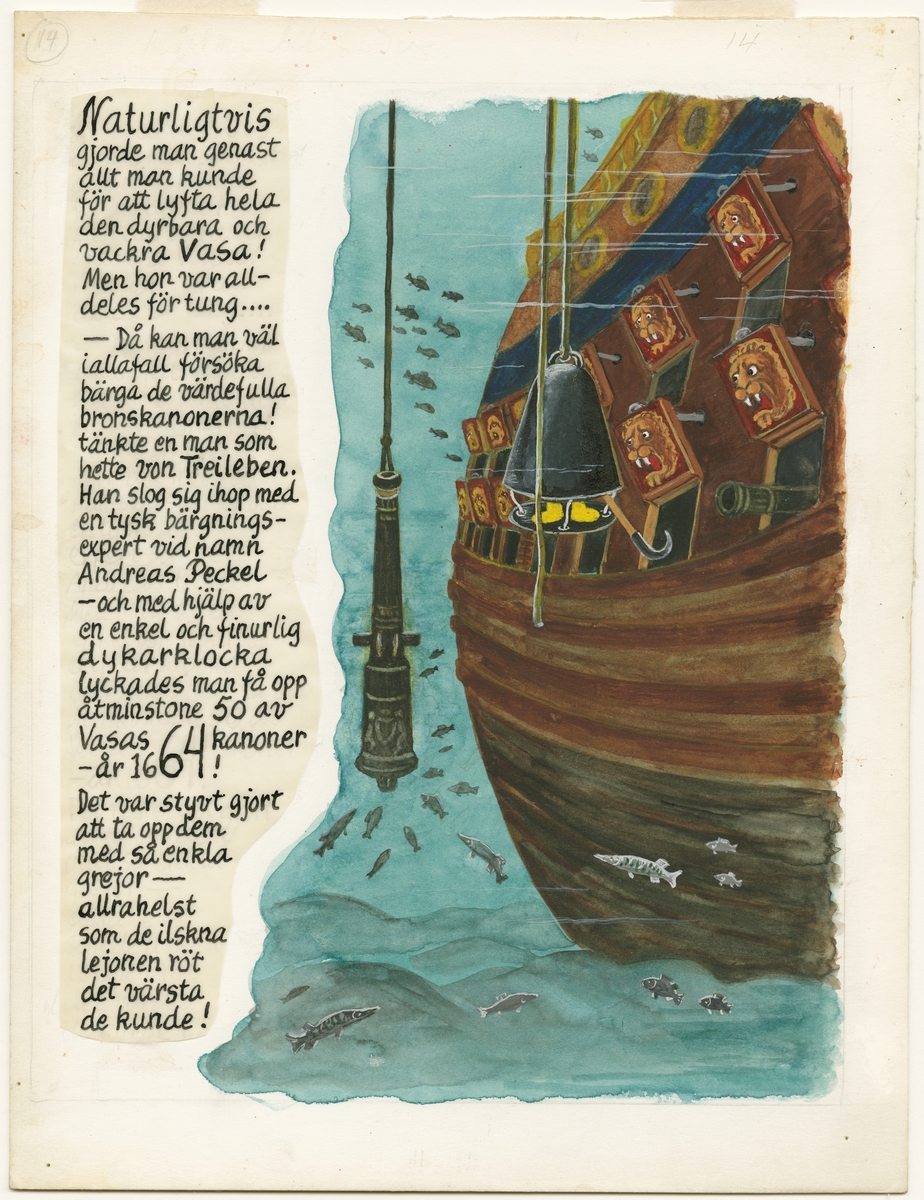 14
14
Naturligtvis
gjorde man genast
allt man kunde
för att lyfta hela
den dyrbara och
vackra Vasa!
Men hon var all-
deles för tung....
— Då kan man väl
iallafall försöka
bärga de värdefulla
bronskanonerna!
tänkte en man som
hette von Treileben.
Han slog sig ihop med
en tysk bärgnings-
expert vid namn
Andreas Peckel
-och med hjälp av
en enkel och finurlig
dykarklocka
lyckades man få opp
åtminstone 50 av
Vasas 64 kanoner
-år 1664!
Det var styvt gjort
att ta opp dem
med så enkla
grejor—
allrahelst
som de ilskna
lejonen röt
det värsta
de kunde!